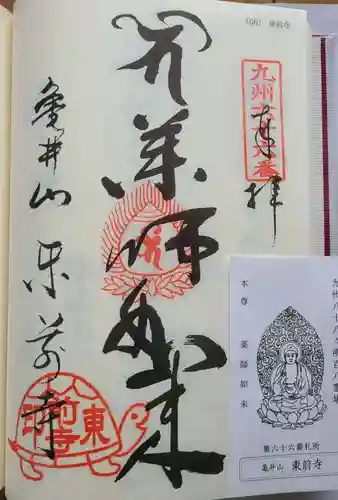 (66) 東前寺
九州六十六番
奉拝
薬師如来
亀井山
東前寺
東前寺
九州八十八ヶ所百八霊場
本尊 薬師如来
第六十六番札所
亀井山 東前寺